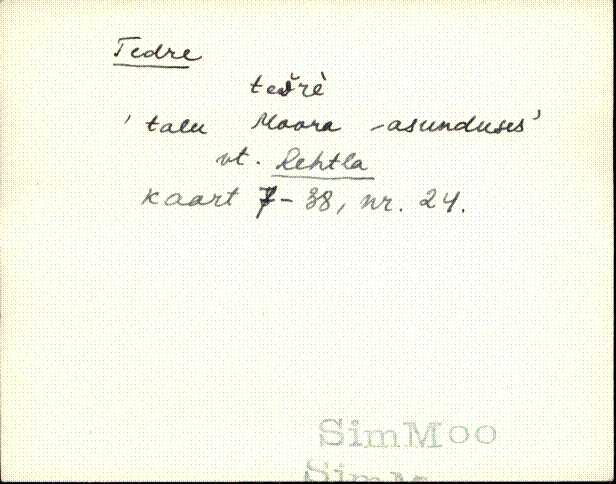 Tedre
tedrè
'talu Moora -asunduses'
vt. Rehtla
kaart 7-38, nr. 24.
SimMoo
SimM